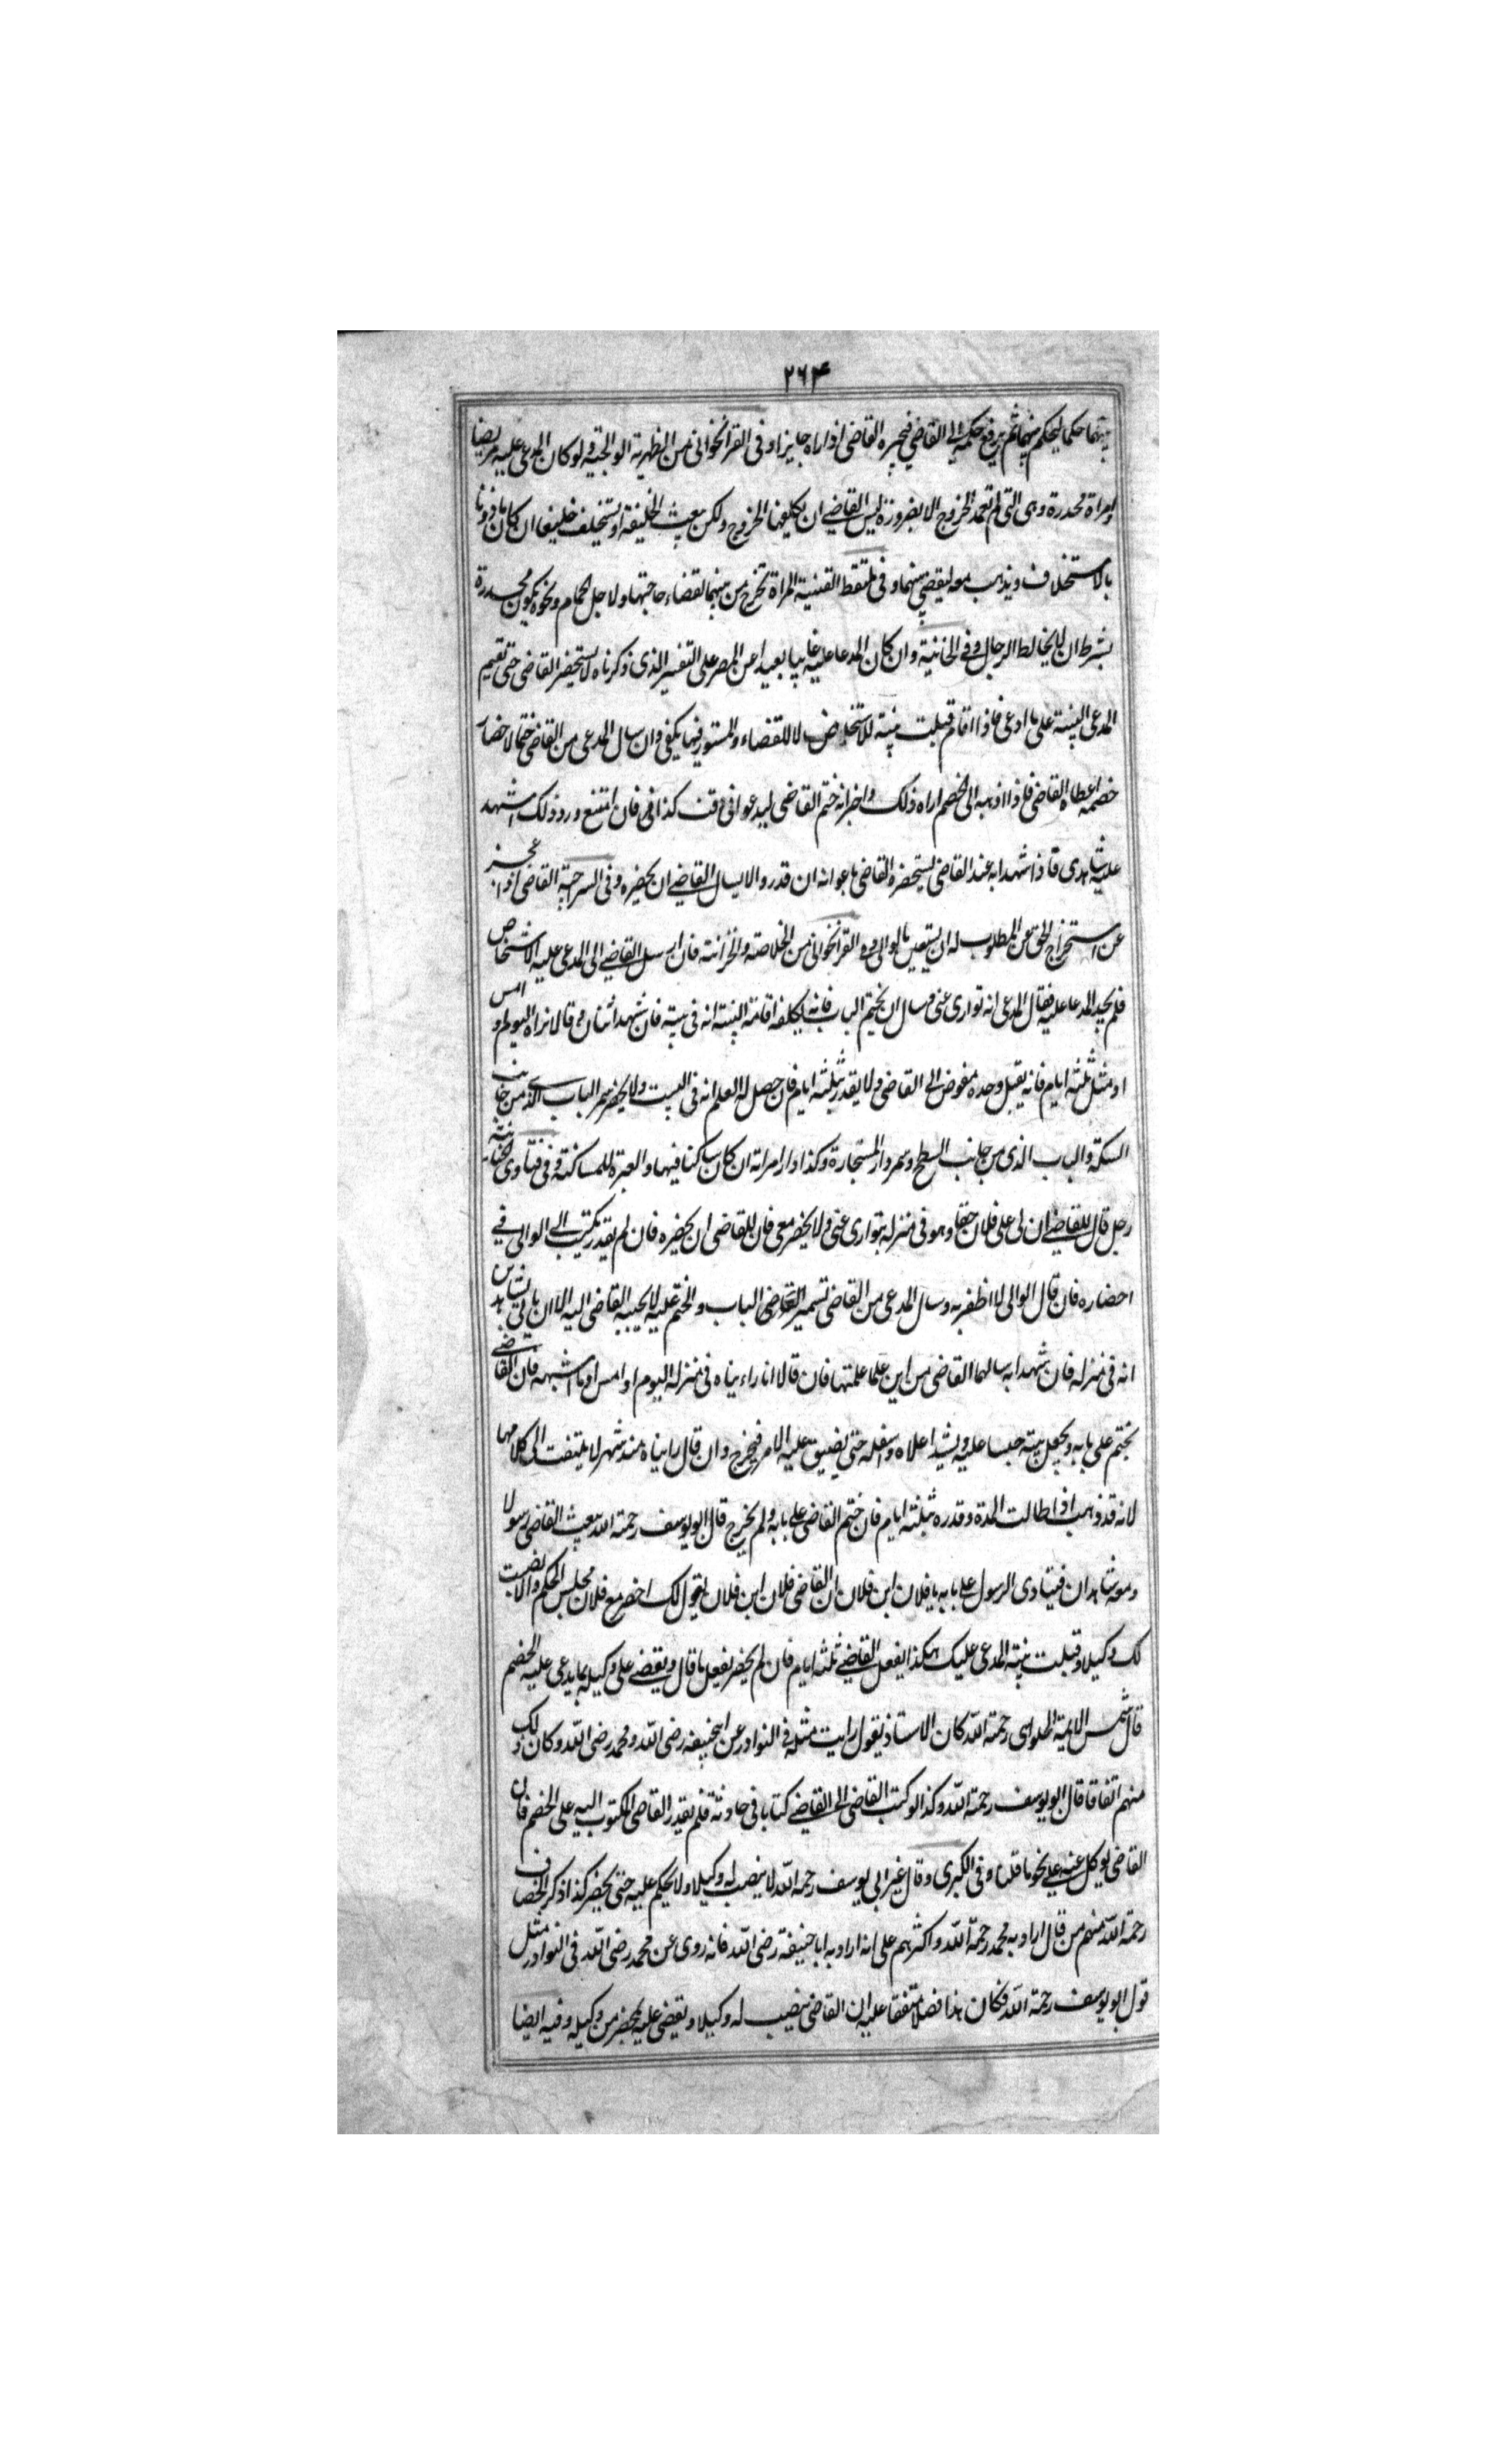 ۲۶۴
بينهما حكما ليحكم بينهما ثم يرفع حكمه الى القاضى فيجيزه القاضى اذا راه جايزا و فى القراخوانى من الظهرية الولوالجية ولو كان المدعى عليه مريضا
وامراة مخدرة وهى التى لم تعهد الخروج الا بضرورة ليس للقاضے ان يكلفها الخروج ولكن يبعث الخليفة او يستخلف خليفا ان كان ماذونا
بالاستخلاف ويذهب معه ليقضى بينهما و فى ملتقط القنية المراة تخرج من بيتها لقضاء حاجتها ولاجل الحمام ونحوه يكون مخدرة
بشرط ان لا يخالط الرجال و فى الخانية وان كان المدعا عليه غايبا بعيدا عن المصر على التفسير الذى ذكرناه لا يستحضر القاضى حتى تقيم
المدعى البينة على ما ادعى فاذا اقام قبلت بينة للاستخلاص لا للقضاء والمستور فيها يكفى وان سال المدعى من القاضى ختما لاحضار
خصمه اعطاه القاضى فاذا اذهبه الى الخصم اراه ذلك واخبر انه ختم القاضى ليدعوا فى وقت كذا فى فان امتنع ورد ذلك اشهد
عليه شاهدى فاذا شهدا به عند القاضى يستحضره القاضى باعوانه ان قدر والا يسال القاضے ان يحضره و فى السراجية القاضى اذا عجز
عن استخراج الحق من المطلوب له ان يستعين بالوالى و فى القراخوانى من الخلاصة والخزانة فان ارسل القاضے الى المدعى عليه الاشخاص
فلم يجد المدعا عليه فقال المدعى انه توارى عنى و سال ان يختم الباب فانه يكلفه اقامة البينة انه فى بيته فان شهد اثنان و قالا نراه اليوم او امس
او مثل ثلثة ايام فانه يقبل وحده مفوض الى القاضى ولا يقدر بثلثة ايام فان حصل له العلم انه فى البيت ولا يحضر سمر الباب الذى من جانب
السكة والباب الذى من جانب السطح وسمر دار المستجارة وكذا دار امراته ان كان ساكنا فيها والعبرة للمساكنة و فى فتاوى الخانية
رجل قال للقاضے ان لى على فلان حقا وهو فى منزله يتوارى عنى ولا يحضر معى فان للقاضى ان يحضره فان لم يقدر يكتب الى الوالى فى
احضاره فان قال الوالى لا اظفر به وسال المدعى من القاضى تسمير القاضى الباب والختم عليه لا يجيبه القاضى اليه الا ان ياتى بشاهدين
انه فى منزله فان شهدا به سالهما القاضى من اين علما علمتها فان قالا انا راءيناه فى منزله اليوم او امس او ما اشبهه فان القاضے
يختم على بابه ويجعل بيته حبسا عليه ويشد اعلاه واسفله حتى يضيق عليه الامر فيخرج وان قال رايناه منذ شهر لا يلتفت الى كلامهما
لانه قد ذهب اذا طالت المدة وقدره بثلثة ايام فان ختم القاضى على بابه ولم يخرج قال ابو يوسف رحمة الله يبعث القاضى رسولا
ومعه شاهدان فينادى الرسول على بابه يا فلان ابن فلان ان القاضى فلان ابن فلان يقول لك احضر مع فلان مجلس الحكم والا نصبت
لك وكيلا وقبلت بينة المدعى عليك هكذا يفعل القاضے ثلثة ايام فان لم يحضر يفعل ما قال ويقضے على وكيله بما يدعى عليه الخصم
قال شمس الايمة الحلواى رحمة الله كان الاستاذ يقول رايت مثله فى النوادر عن ابيحنيفه رضى الله ومحمد رضى الله وكان ذلك
منهم اتفاقا قال ابو يوسف رحمة الله وكذا لو كتب القاضى الى القاضے كتابا فى حادثة فلم يقدر القاضى المكتوب اليه على الخصم فان
القاضى يوكل عنه على نحو ما قلنا و فى الكبرى وقال غير ابى يوسف رحمه الله لا ينصب له وكيلا ولا يحكم عليه حتى يحضر كذا ذكر الخصاف
رحمة الله منهم من قال اراد به محمد رحمة الله واكثرهم على انه اراد به ابا حنيفة رضى الله فانه روى عن محمد رضى الله فى النوادر مثل
قول ابو يوسف رحمة الله فكان هذا فصلا متفقا عليه ان القاضى ينصب له وكيلا ويقضى عليه بحضر من وكيله وفيه ايضا